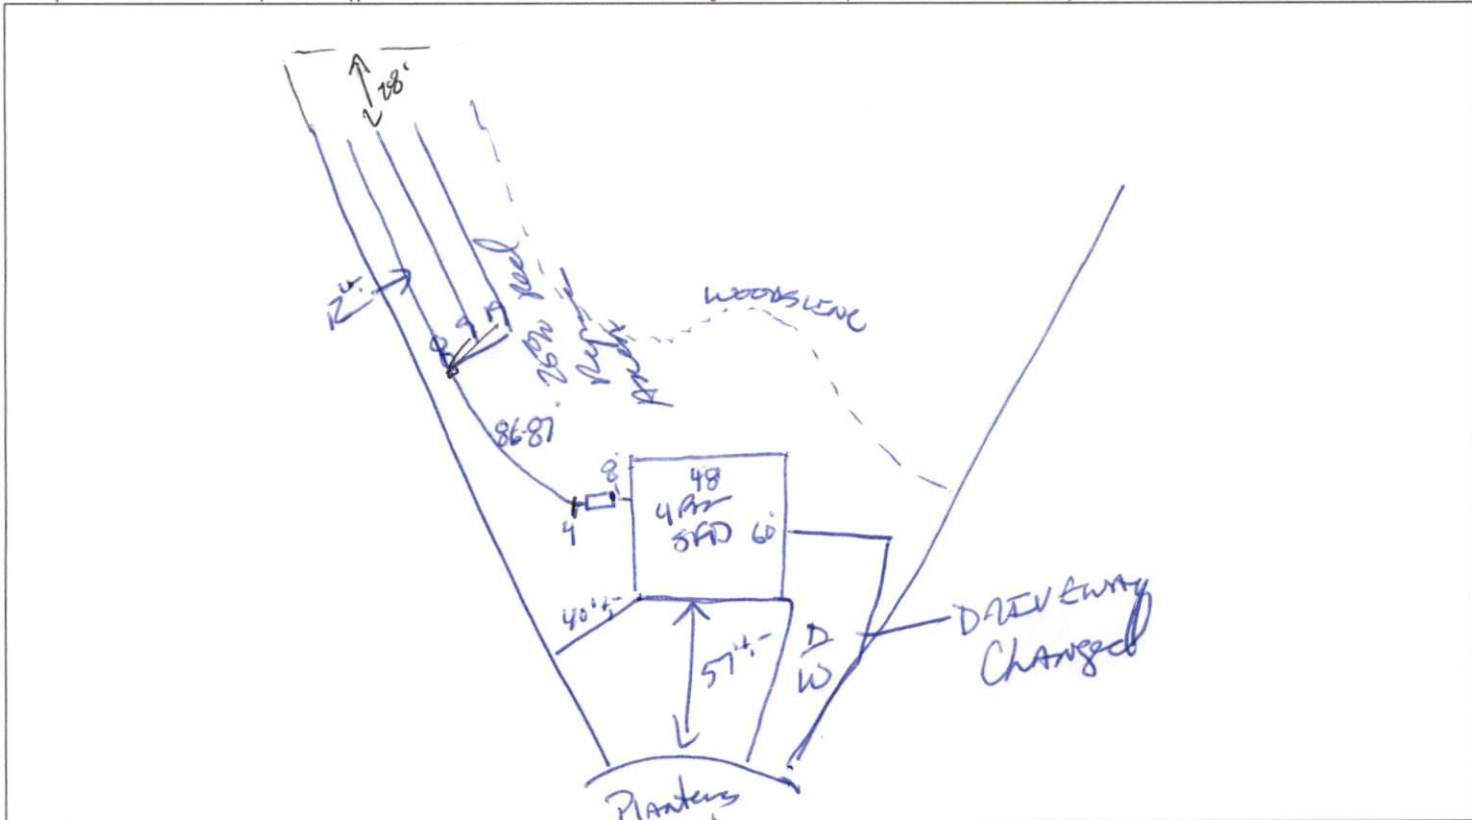 28'
12'±
8
9
9
25% Red
Repair
Area
WOODSLINE
86-87'
8'
4
48
4 BR
SFD 60'
40'±
57'±
D/W
DRIVEWAY
Changed
Planters